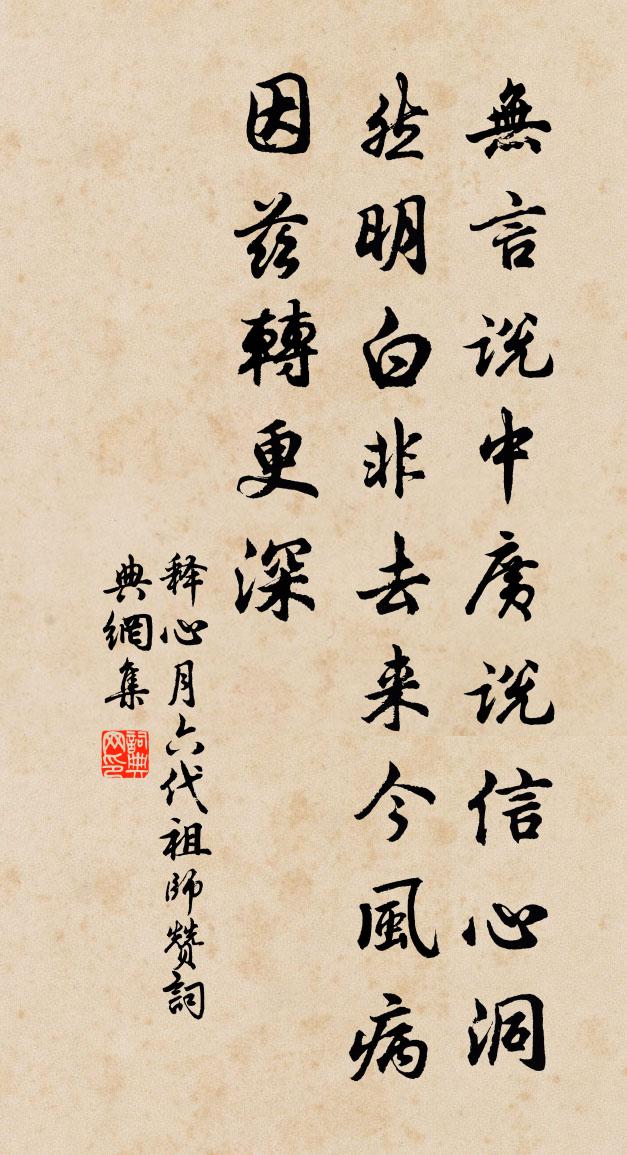 無言說中廣說信心洞
然明白非去来今風病
因茲轉更深
释心月六代祖師贊詞
典網集
詞典網印